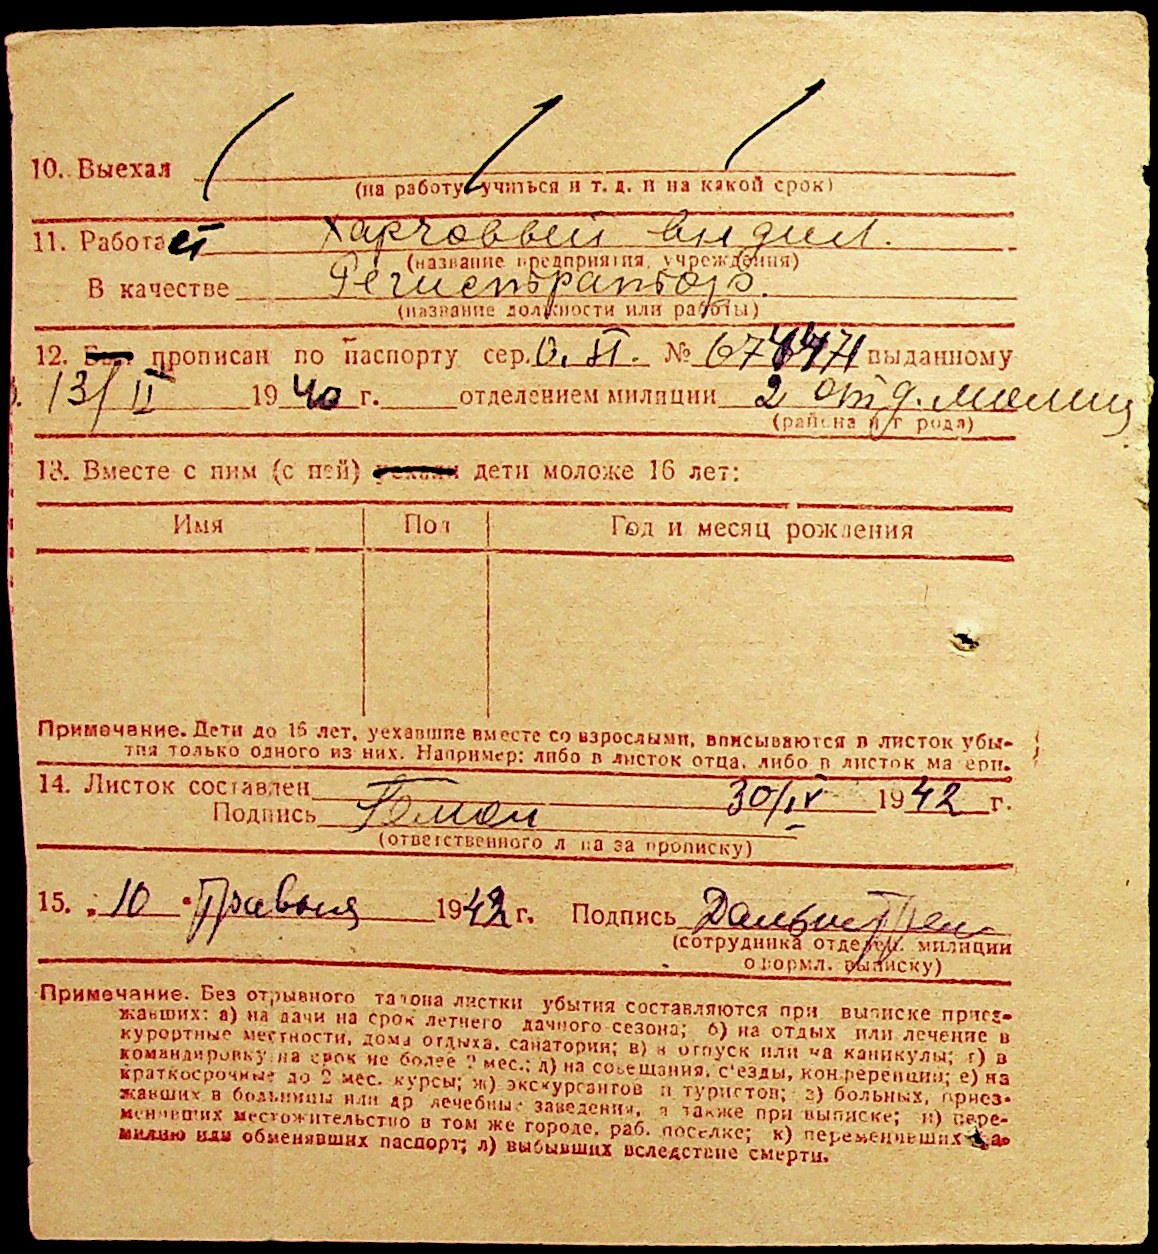 10. Выехал
(на работу, учиться и т. д. и на какой срок)
11. Работает Харчоввый видил.
(название предприятия, учреждения)
В качестве Регистратора.
(название должности или работы)
12. Был прописан по паспорту сер. № выданному
13/II 1940 г. отделением милиции 2 отд. милиц
(района и г рода)
13. Вместе с ним (с ней) уехали дети моложе 16 лет:
Имя Пол Год и месяц рождения
Примечание. Дети до 16 лет, уехавшие вместе со взрослыми, вписываются в листок убы-
тия только одного из них. Например: либо в листок отца, либо в листок ма ери.
14. Листок составлен 30/IV 1942 г.
Подпись
(ответственного л ца за прописку)
15. „10 " Травня 1942 г. Подпись
(сотрудника отделен. милиции
оформл. выписку)
Примечание. Без отрывного талона листки убытия составляются при выписке приез-
жавших: а) на дачи на срок летнего дачного сезона; б) на отдых или лечение в
курортные местности, дома отдыха, санатории; в) в отпуск или на каникулы; г) в
командировку на срок не более 2 мес.; д) на совещания, с'езды, конференции; е) на
краткосрочные до 2 мес. курсы; ж) экскурсантов и туристов; з) больных, приез-
жавших в больницы или др лечебные заведения, а также при выписке; и) пере-
менивших местожительство в том же городе, раб. поселке; к) переменивших фа-
милию или обменявших паспорт; л) выбывших вследствие смерти.